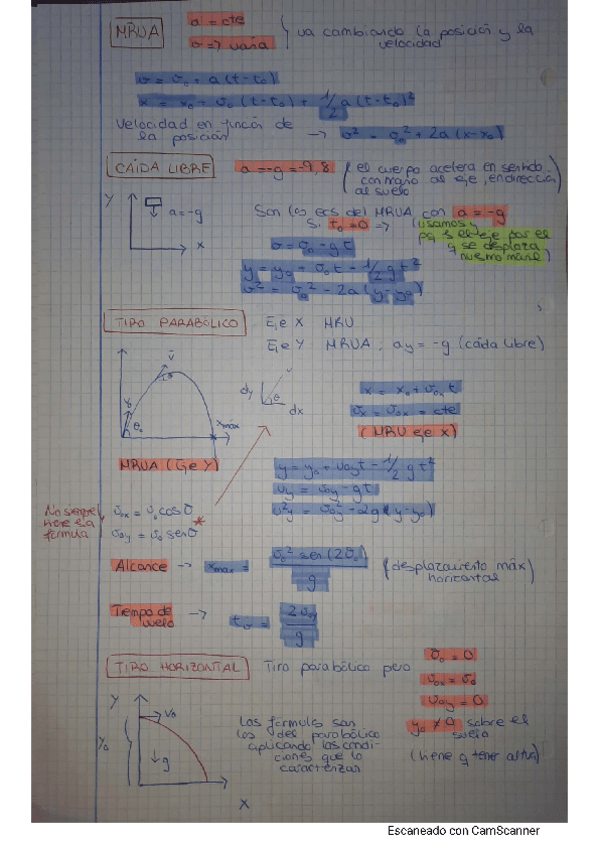 MRUA
a = cte
v => varía
va cambiando la posición y la velocidad
v = v₀ + a(t-t₀)
x = x₀ + v₀(t-t₀) + 1/2 a(t-t₀)²
Velocidad en función de la posición -> v² = v₀² + 2a(x-x₀)
CAÍDA LIBRE
a = -g = -9,8
(el cuerpo acelera en sentido contrario al eje, en dirección al suelo)
y
↓ a = -g
x
Son las ecs del MRUA con a = -g
Si t₀ = 0 =>
(usamos y pq s el eje por el q se desplaza nuestro móvil)
v = v₀ - gt
y = y₀ + v₀t - 1/2 gt²
v² = v₀² - 2a(y-y₀)
TIRO PARABÓLICO
Eje X MRU
Eje Y MRUA: ay = -g (caída libre)
v
v₀
θ₀
xmáx
dy
dx
θ
v
x = x₀ + v₀ₓt
vₓ = v₀ₓ = cte
(MRU eje x)
MRUA (Eje Y)
y = y₀ + v₀yt - 1/2 gt²
vy = v₀y - gt
v²y = v₀y² - 2g(y-y₀)
No siempre viene la fórmula
v₀ₓ = v₀ cos θ
v₀y = v₀ sen θ *
Alcance -> xmáx = v₀² sen(2θ₀) / g
(desplazamiento máx horizontal)
Tiempo de vuelo -> tv = 2v₀y / g
TIRO HORIZONTAL
Tiro parabólico pero
θ₀ = 0
v₀ₓ = v₀
v₀y = 0
y₀ ≠ 0 sobre el suelo
(tiene q tener altura)
y
v₀
y₀
↓ g
x
Las fórmulas son las del parabólico aplicando las condiciones que lo caracterizan
Escaneado con CamScanner